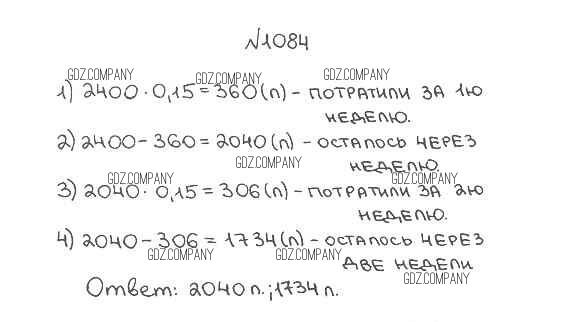 №1084
GDZ.COMPANY GDZ.COMPANY GDZ.COMPANY
1) 2400 · 0,15 = 360 (л) – ПОТРАТИЛИ ЗА 1Ю
НЕДЕЛЮ.
2) 2400 – 360 = 2040 (л) – ОСТАЛОСЬ ЧЕРЕЗ
GDZ.COMPANY
НЕДЕЛЮ.
GDZ.COMPANY GDZ.COMPANY
3) 2040 · 0,15 = 306 (л) – ПОТРАТИЛИ ЗА 2Ю
НЕДЕЛЮ.
4) 2040 – 306 = 1734 (л) – ОСТАЛОСЬ ЧЕРЕЗ
GDZ.COMPANY GDZ.COMPANY
ДВЕ НЕДЕЛИ
GDZ.COMPANY
Ответ: 2040 л.; 1734 л.